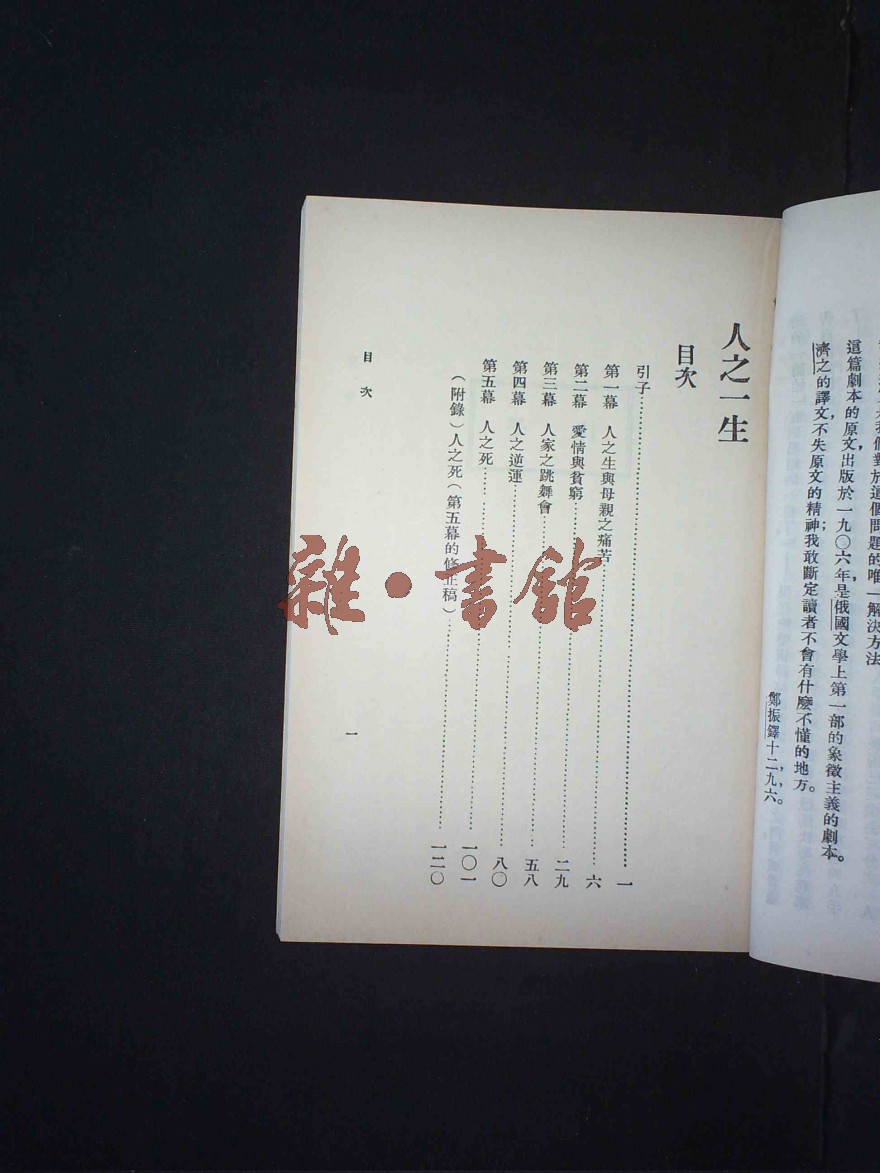 們對於這個問題的唯一解決方法
這篇劇本的原文,出版於一九〇六年,是俄國文學上第一部的象徵主義的劇本。
濟之的譯文,不失原文的精神;我敢斷定讀者不會有什麼不懂的地方。
鄭振鐸十二,九,六。
人之一生
目次
引子……一
第一幕 人之生與母親之痛苦……六
第二幕 愛情與貧窮……二九
第三幕 人家之跳舞會……五八
第四幕 人之逆運……八〇
第五幕 人之死……一〇一
(附錄)人之死(第五幕的修正稿)……一二〇
目次
一
雜·書館